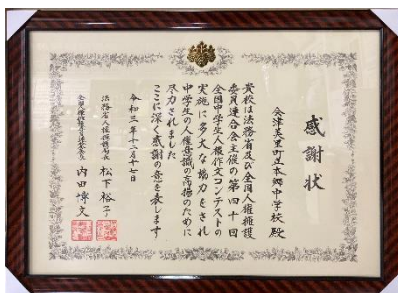 感謝状
会津美里町立本郷中学校殿
貴校は法務省及び全国人権擁護
委員連合会主催の第四十回
全国中学生人権作文コンテストの
実施に多大な協力をされ
中学生の人権意識の高揚のために
尽力されました
ここに深く感謝の意を表します
令和三年十二月十七日
法務省人権擁護局長 松下裕子
全国人権擁護委員連合会長 内田博文